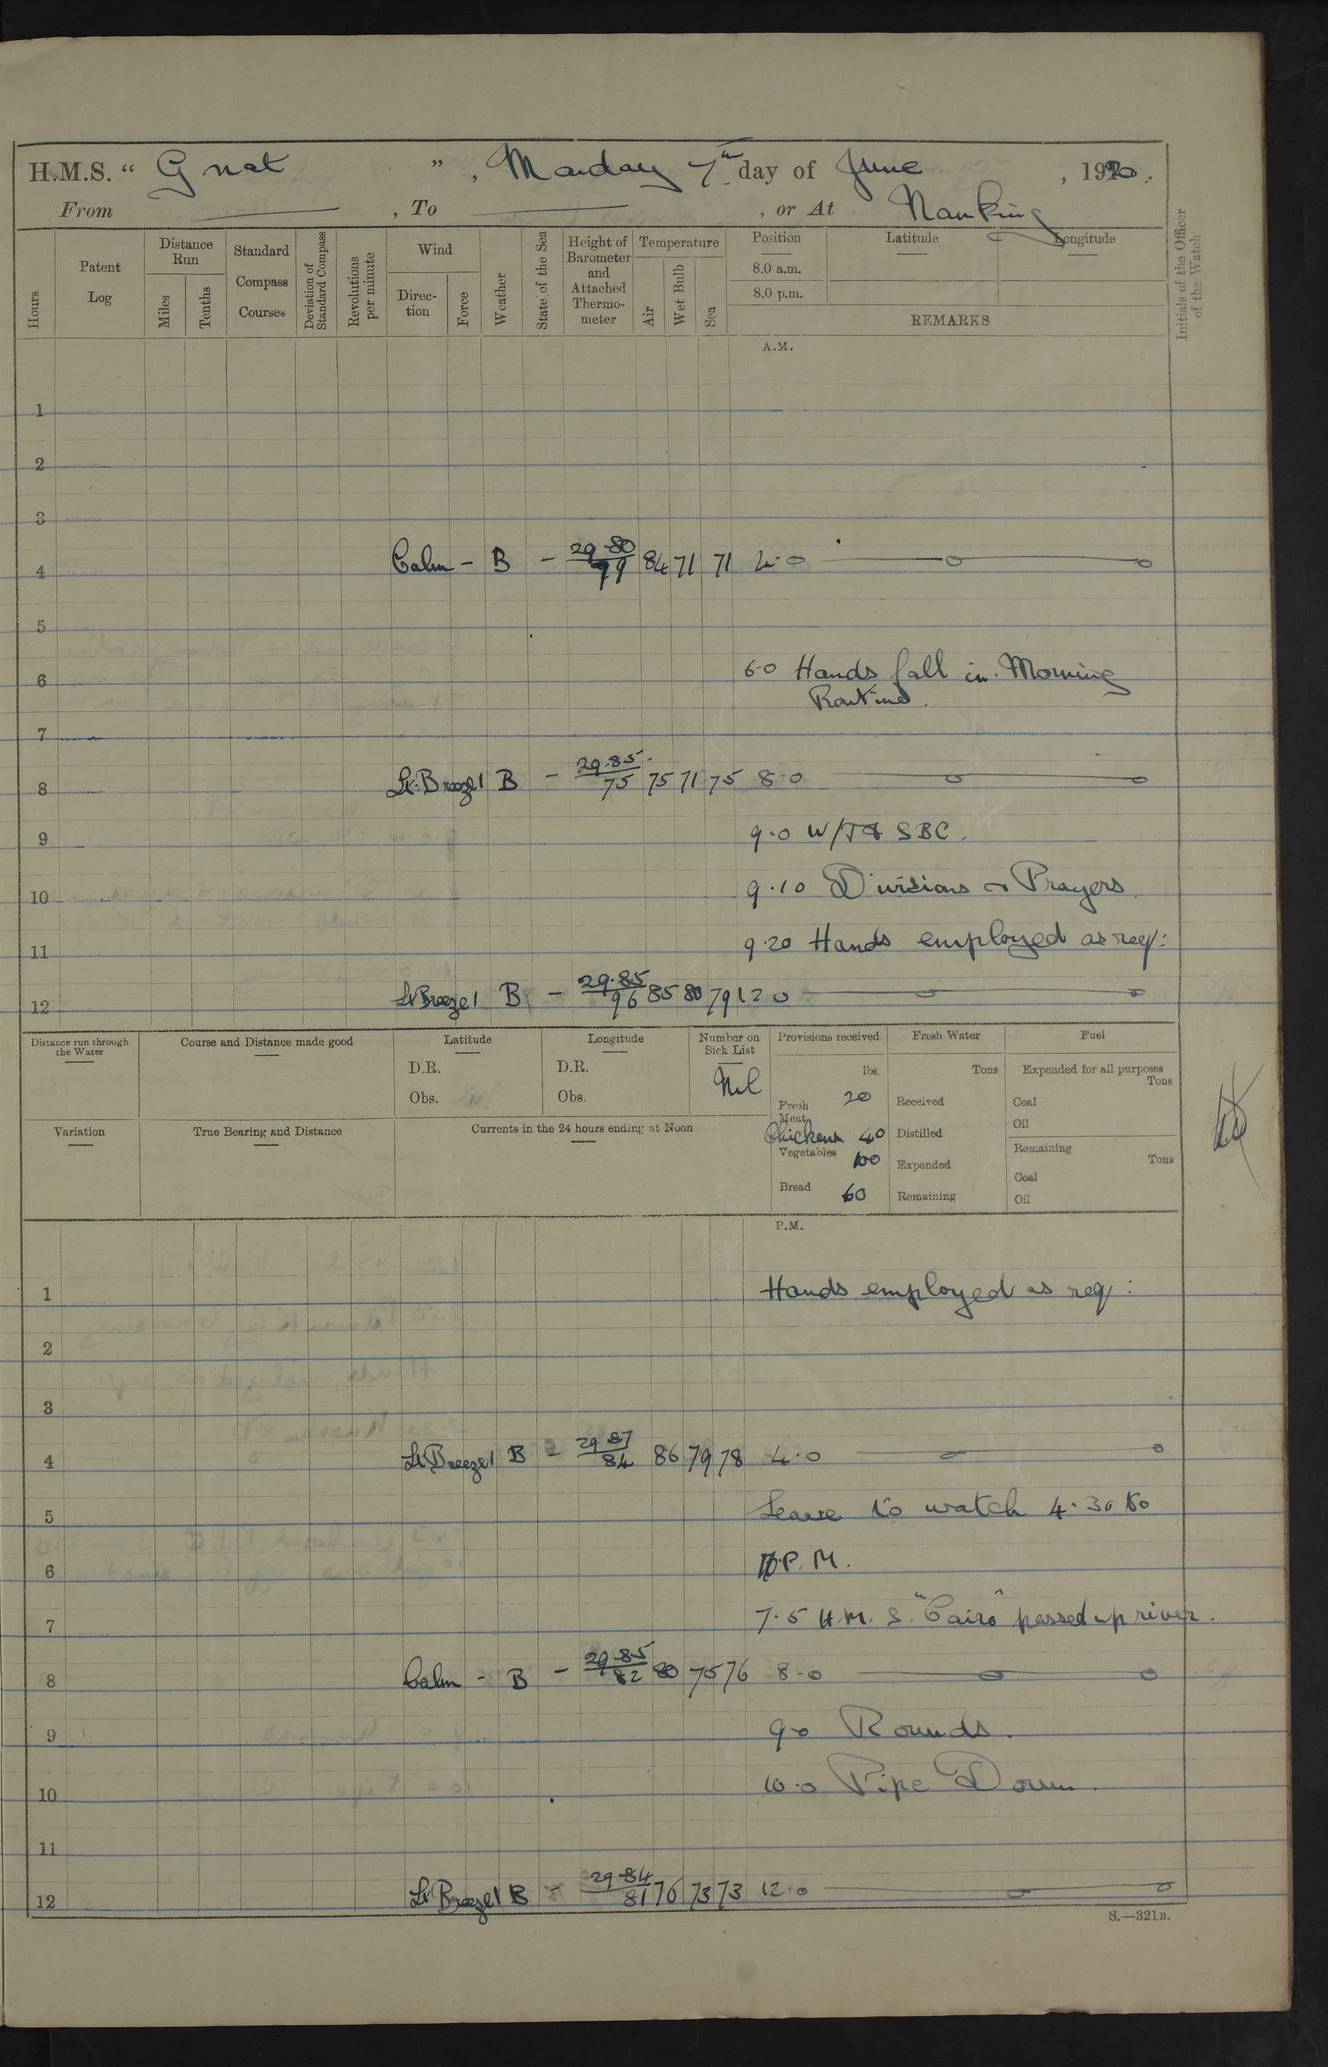 H.M.S. " Gnat " , Monday 7th day of June , 1920.
From , To , or At Nanking
Hours
Patent Log
Distance Run
Miles
Tenths
Standard Compass Courses
Deviation of Standard Compass
Revolutions per minute
Wind
Direction
Force
Weather
State of the Sea
Height of Barometer and Attached Thermometer
Temperature
Air
Wet Bulb
Sea
Position
8.0 a.m.
8.0 p.m.
Latitude
Longitude
REMARKS
Initials of the Officer of the Watch
A.M.
1
2
3
4 Calm - B - 29.80 84 71 71 4.0
5
6 6.0 Hands fall in. Morning
Routine.
7
8 Lt. Breeze 1 B - 29.85 75 75 71 75 8.0
9 9.0 W/T & SBC.
10 9.10 Divisions & Prayers
11 9.20 Hands employed as req:
12 Lt Breeze 1 B - 29.85 96 85 80 79 12 0
Distance run through the Water
Course and Distance made good
Latitude
D.R.
Obs.
Longitude
D.R.
Obs.
Number on Sick List
Nil
Provisions received
lbs.
Fresh Meat 20
Chickens 40
Vegetables 100
Bread 60
Fresh Water
Tons
Received
Distilled
Expended
Remaining
Fuel
Expended for all purposes
Tons
Coal
Oil
Remaining
Tons
Coal
Oil
Variation
True Bearing and Distance
Currents in the 24 hours ending at Noon
P.M.
1 Hands employed as req:
2
3
4 Lt Breeze 1 B - 29 87 84 86 79 78 4.0
5 Leave to watch 4.30 to
6 P.M.
7 7.5 H.M.S. "Cairo" passed up river.
8 Calm - B - 29.85 82 80 75 76 8.0
9 9.0 Rounds.
10 10.0 Pipe Down.
11
12 Lt Breeze 1 B - 29.84 81 76 73 73 12.0
S.—321B.